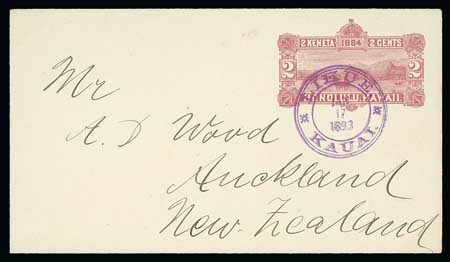 2 KENETA 1884 2 CENTS
2 2
HONOLULU, HAWAII.
LIHUE
17
1893
KAUAI.
Mr
A. D Wood
Auckland
New. Zealand